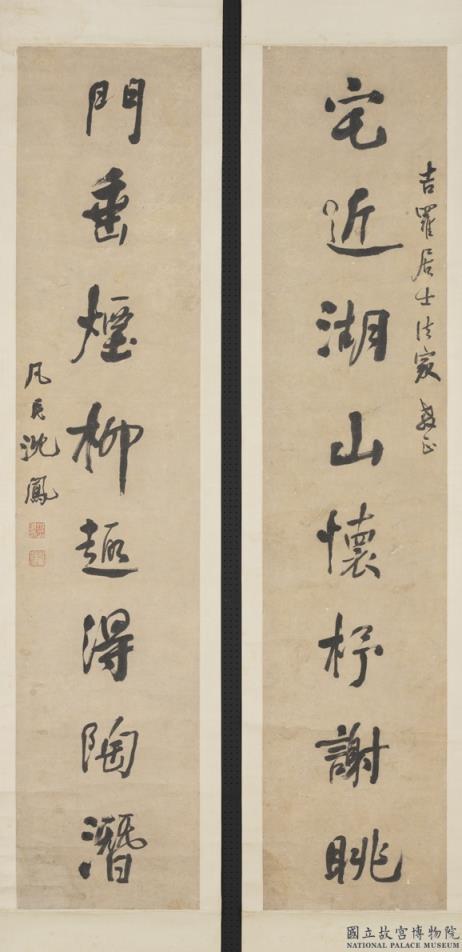 吉羅居士法家教正
宅近湖山懷杼謝眺
門垂煙柳趣得陶潛
凡民沈鳳
國立故宮博物院
NATIONAL PALACE MUSEUM